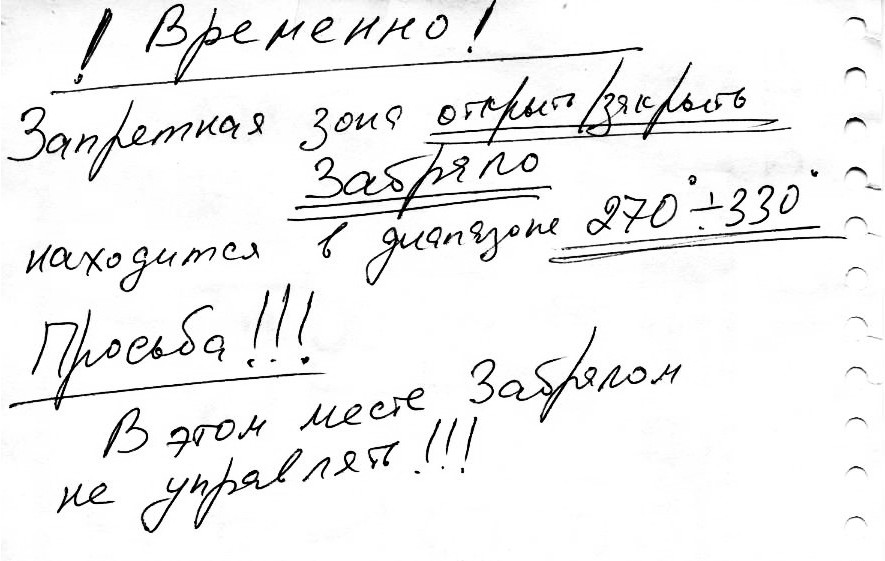 ! Временно!
Запретная зона открыть/закрыть
Забрало
находится в диапазоне 270°÷330°
Просьба!!!
В этом месте Забралом
не управлять!!!